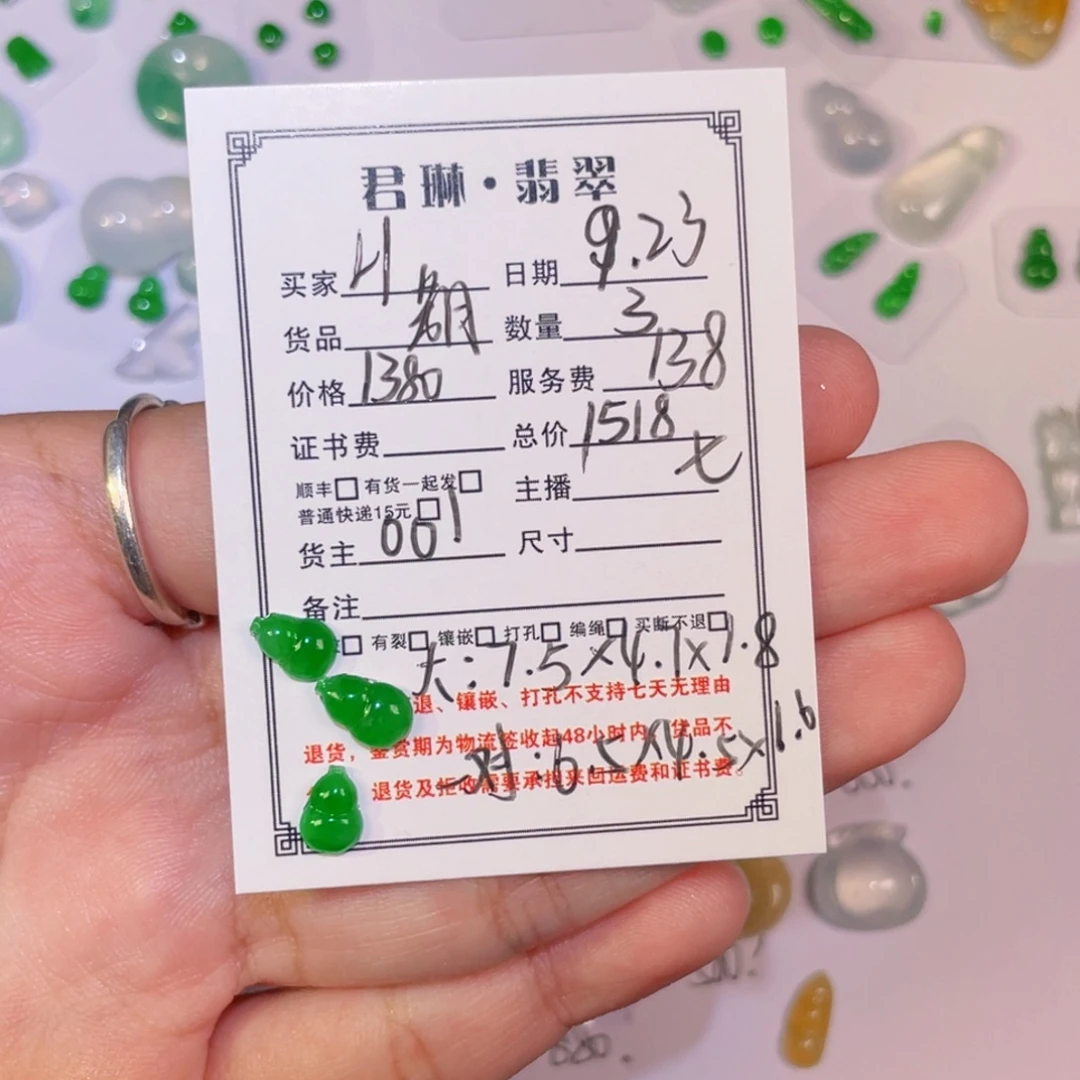 君琳·翡翠
买家 日期 9.23
货品 数量 3
价格 1380 服务费 138
证书费 总价 1518
七
顺丰 有货一起发 主播
普通快递15元
货主 001 尺寸
备注
有裂 镶嵌 打孔 编绳 买断不退
大:7.5×4.1×
退、镶嵌、打孔不支持七天无理由
退货，鉴赏期为物流签收起48小时内。货品不
一对:6.5×4.5×1.6
退货及拒收需要承担来回运费和证书费。